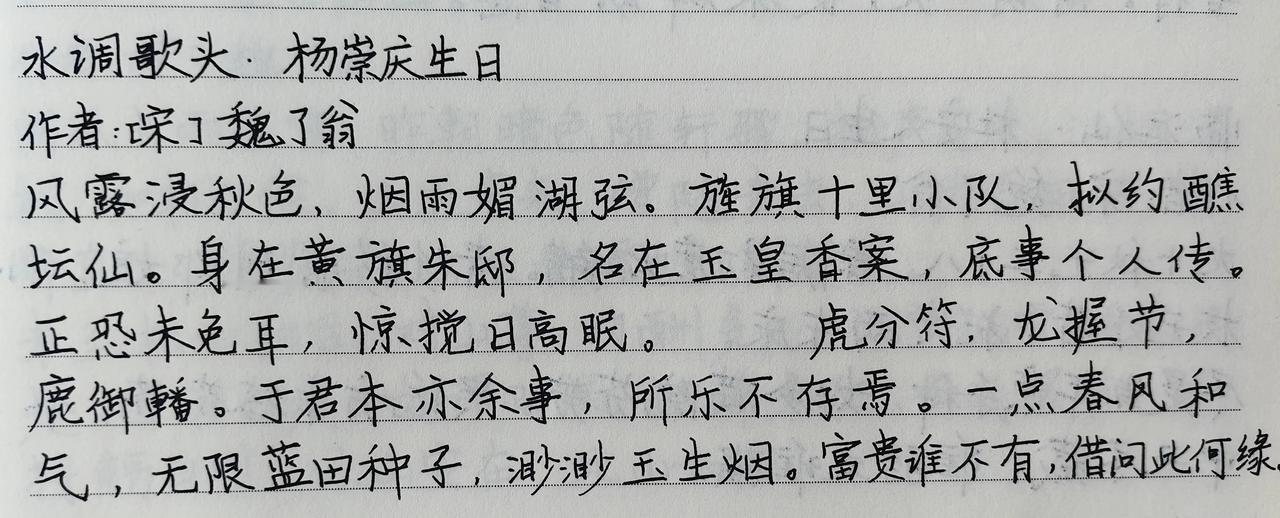 水调歌头·杨崇庆生日
作者:[宋]魏了翁
风露浸秋色,烟雨媚湖弦。旌旗十里小队,拟约醮
坛仙。身在黄旗朱邸,名在玉皇香案,底事个人传。
正恐未免耳,惊搅日高眠。 虎分符,龙握节,
鹿御轓。于君本亦余事,所乐不存焉。一点春风和
气,无限蓝田种子,渺渺玉生烟。富贵谁不有,借问此何缘。